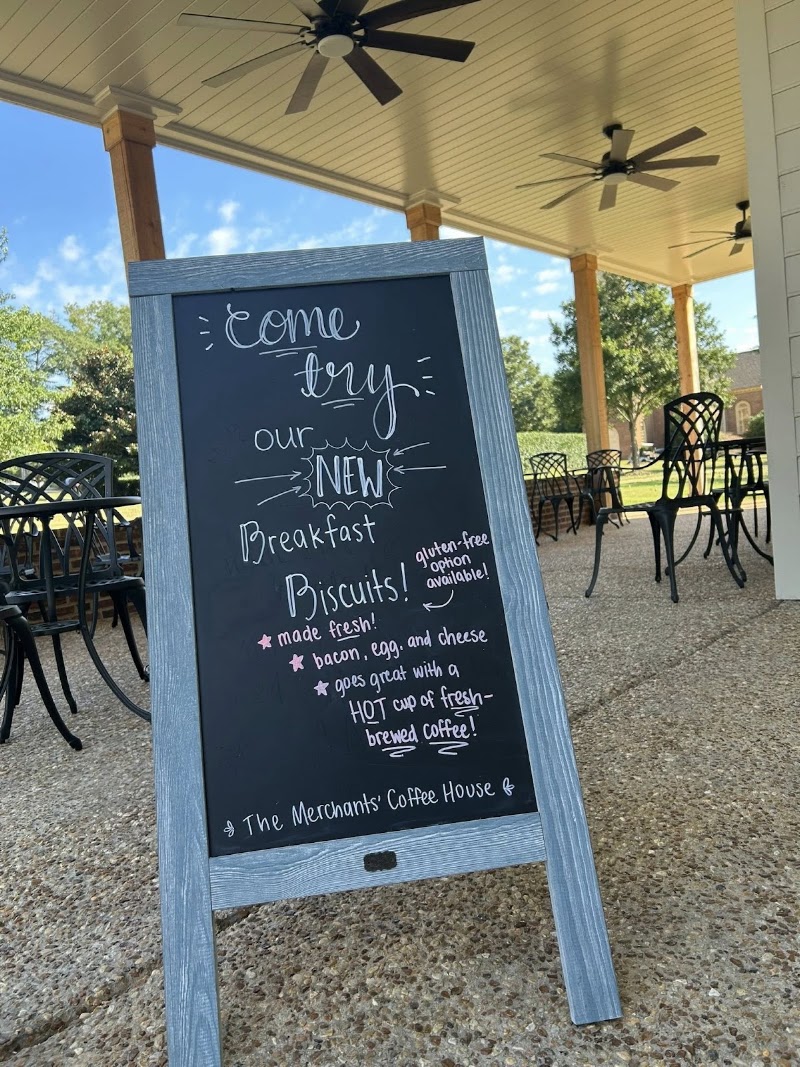 Come
try
our
NEW
Breakfast
Biscuits!
gluten-free
option
available!
made fresh!
bacon, egg, and cheese
goes great with a
HOT cup of fresh-
brewed coffee!
The Merchants' Coffee House